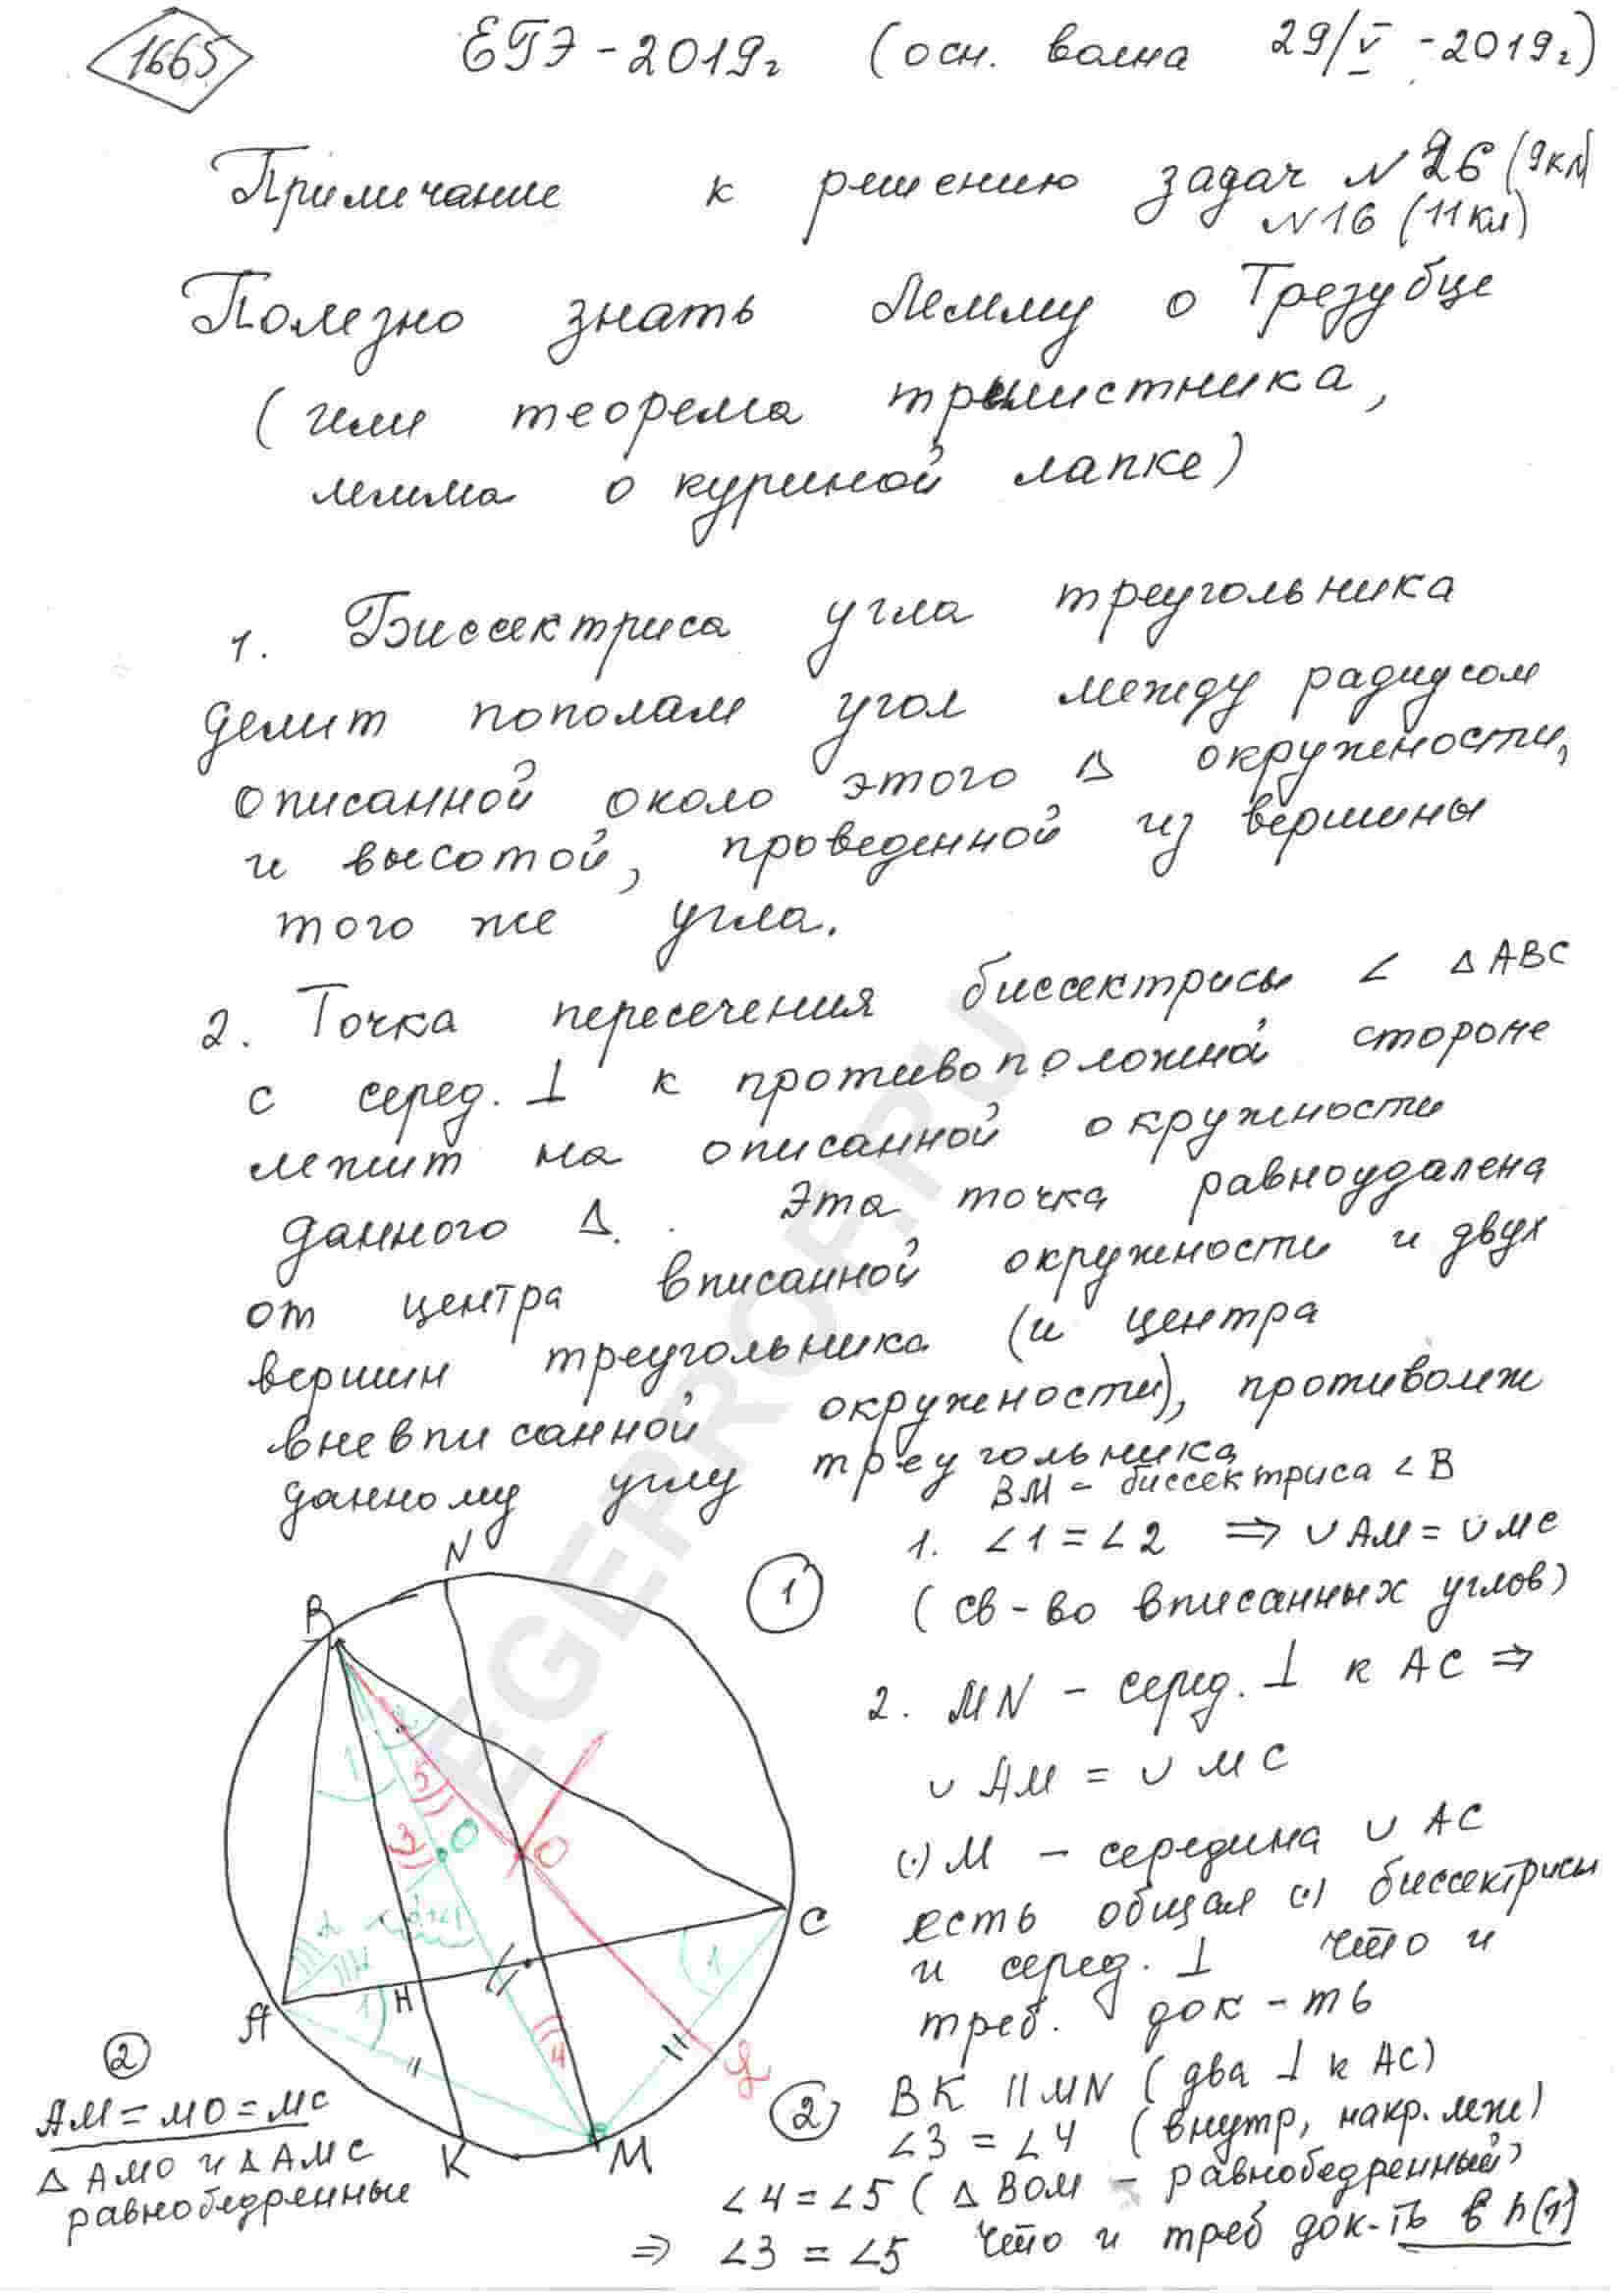 1665
ЕГЭ - 2019г (осн. волна 29/V - 2019г)
Примечание к решению задач N 26 (9кл)
N 16 (11кл)
Полезно знать Лемму о Трезубце
(или теорема трилистника,
лемма о куриной лапке)
1. Биссектриса угла треугольника
делит пополам угол между радиусом
описанной около этого Δ окружности,
и высотой, проведенной из вершины
того же угла.
2. Точка пересечения биссектрисы ∠ ΔABC
с серед. ⊥ к противоположной стороне
лежит на описанной окружности
данного Δ. Эта точка равноудалена
от центра вписанной окружности и двух
вершин треугольника (и центра
вневписанной окружности), противолеж
данному углу треугольника
BM - биссектриса ∠B
1
1. ∠1 = ∠2 ⇒ ∪AM = ∪MC
(св-во вписанных углов)
2. MN - серед. ⊥ к AC ⇒
∪ AM = ∪ MC
(·) M - середина ∪ AC
есть общая (·) биссектрисы
и серед. ⊥ что и
треб. док-ть
2
BK || MN (два ⊥ к AC)
∠3 = ∠4 (внутр, накр. леж)
∠4 = ∠5 (Δ BOM - равнобедренный)
⇒ ∠3 = ∠5 Что и треб док-ть в п(1)
N
B
1
2
5
3
O
O
C
1
A
H
1
4
K
M
2
AM = MO = MC
Δ AMO и Δ AMC
равнобедренные
EGEPROF.RU